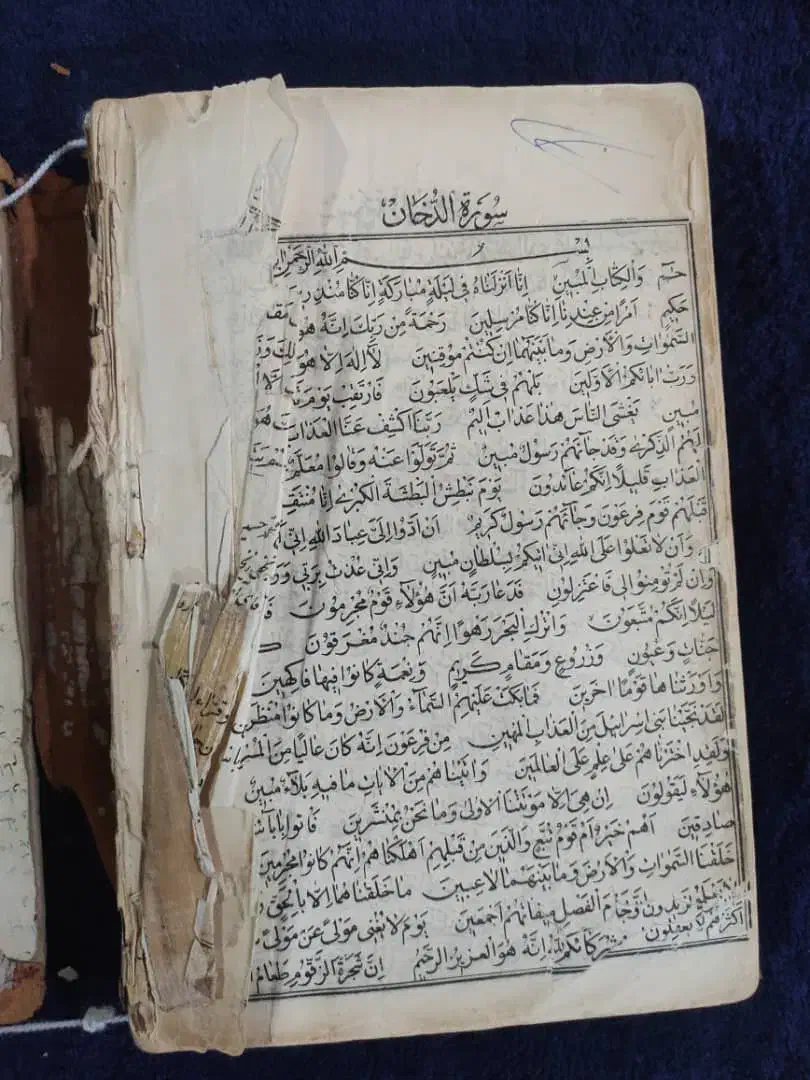 سورة الدخان
بسم الله الرحمن الر
حم والكتاب المبين انا انزلناه في ليلة مباركة انا كنا منذر
حكيم امرا من عندنا انا كنا مرسلين رحمة من ربك انه هو
السموات والارض وما بينهما ان كنتم موقنين لا اله الا هو
ورب ابائكم الاولين بل هم في شك يلعبون فارتقب يوم
مبين يغشى الناس هذا عذاب اليم ربنا اكشف عنا العذاب
لهم الذكرى وقد جائهم رسول مبين ثم تولوا عنه وقالوا معلم
العذاب قليلا انكم عائدون يوم نبطش البطشة الكبرى انا منتق
قبلهم قوم فرعون وجائهم رسول كريم ان ادوا الى عباد الله اني
وان لا تعلوا على الله اني اتيكم بسلطان مبين واني عذت بربي ور
وان لم تؤمنوا لي فاعتزلون فدعا ربه ان هؤلاء قوم مجرمون
ليلا انكم متبعون واترك البحر رهوا انهم جند مغرقون
جنات وعيون وزروع ومقام كريم ونعمة كانوا فيها فاكهين
واورثناها قوما اخرين فما بكت عليهم السماء والارض وما كانوا منظرين
لقد نجينا بني اسرائيل من العذاب المهين من فرعون انه كان عاليا من المسر
ولقد اخترناهم على علم على العالمين واتيناهم من الايات ما فيه بلاء مبين
هؤلاء ليقولون ان هي الا موتتنا الاولى وما نحن بمنشرين فاتوا بابا
صادقين اهم خير ام قوم تبع والذين من قبلهم اهلكناهم انهم كانوا مجرمين
خلقنا السموات والارض وما بينهما لاعبين ما خلقناهما الا بالحق
اجمعين يوم لا يغني مولى عن مولى
اكثرهم لا يعلمون انه هو العزيز الرحيم ان شجرة الزقوم طعام